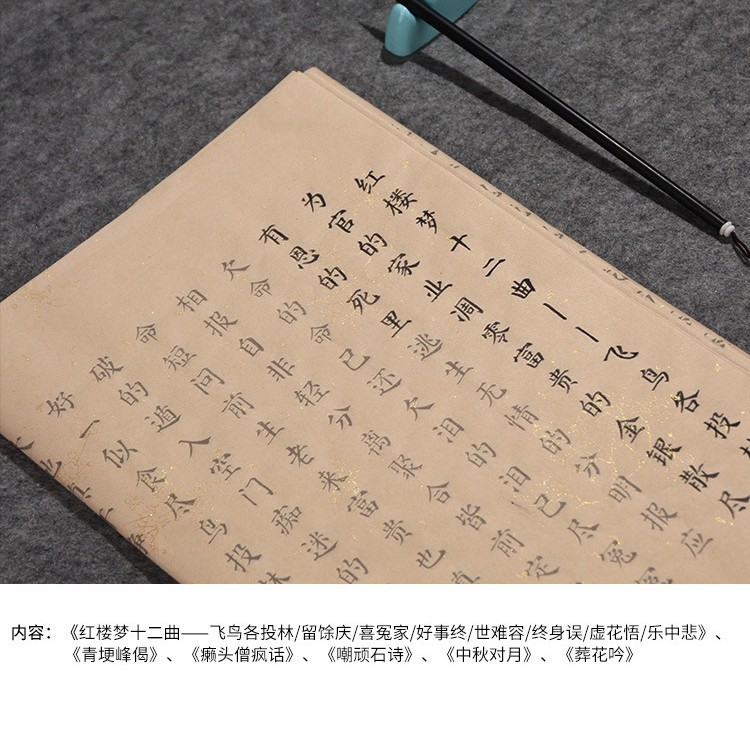 红楼梦十二曲——飞鸟各投
为官的家业凋零富贵的金银散尽
有恩的死里逃生无情的分明报应
欠命的命已还欠泪的泪已尽冤
相报自非轻分离聚合皆前定
命短问前生老来富贵也真
破的遁入空门痴迷的
好一似食尽鸟投林
内容：《红楼梦十二曲——飞鸟各投林/留馀庆/喜冤家/好事终/世难容/终身误/虚花悟/乐中悲》、
《青埂峰偈》、《癞头僧疯话》、《嘲顽石诗》、《中秋对月》、《葬花吟》